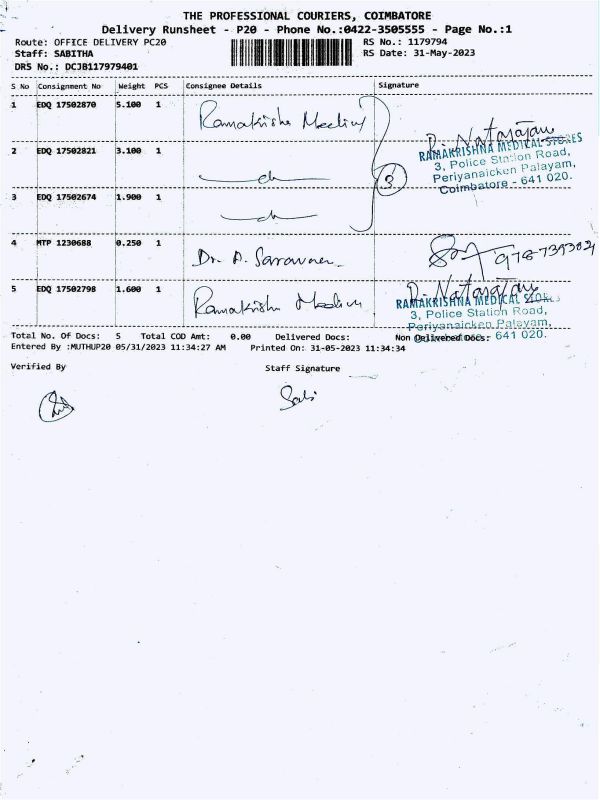 THE PROFESSIONAL COURIERS, COIMBATORE
Delivery Runsheet - P20 - Phone No.:0422-3505555 - Page No.:1
Route: OFFICE DELIVERY PC20 RS No.: 1179794
Staff: SABITHA RS Date: 31-May-2023
DRS No.: DCJB117979401
S No Consignment No Weight PCS Consignee Details Signature
1 EDQ 17502870 5.100 1 Ramakrishna Medical
R. Natarajan
RAMAKRISHNA MEDICAL STORES
2 EDQ 17502821 3.100 1 do
3, Police Station Road,
Periyanaicken Palayam,
Coimbatore - 641 020.
3
3 EDQ 17502674 1.900 1 do
4 MTP 1230688 0.250 1 Dr. A. Saravanan
5 EDQ 17502798 1.600 1 Ramakrishna Medical
R. Natarajan
RAMAKRISHNA MEDICAL STORES
3, Police Station Road,
Periyanaicken Palayam,
Coimbatore - 641 020.
Total No. Of Docs: 5 Total COD Amt: 0.00 Delivered Docs: Non Delivered Docs:
Entered By :MUTHUP20 05/31/2023 11:34:27 AM Printed On: 31-05-2023 11:34:34
Verified By Staff Signature
Sabi